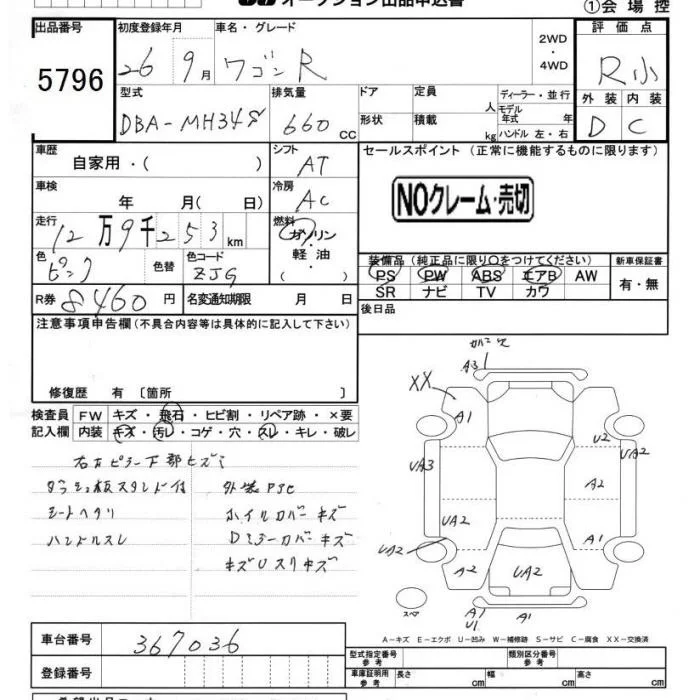 オークション出品申込書
①会場控
出品番号 初度登録年月 車名・グレード 2WD・4WD 評価点
5796 26 9月 ワゴンR R小
型式 排気量 ドア 定員 人 ディーラー・並行 外装 内装
DBA-MH34S 660 cc 形状 積載 kg モデル年式 年 ハンドル 左・右 D C
車歴 シフト セールスポイント (正常に機能するものに限ります)
自家用・( ) AT
車検 冷房
年 月( 日) AC NOクレーム・売切
走行 燃料
12万9千253km ガソリン・軽油・( )
色 色替 色コード 装備品 (純正品に限り○をつけてください) 新車保証書
ピンク ZJG PS PW ABS エアB AW 有・無
R券 8460円 名変通知期限 月 日 SR ナビ TV カワ
後日品
注意事項申告欄 (不具合内容等は具体的に記入して下さい)
修復歴 有 〔箇所 〕
検査員 FW キズ・飛石・ヒビ割・リペア跡・×要
記入欄 内装 キズ・汚レ・コゲ・穴・スレ・キレ・破レ
右左ピラー下部ヒズミ
ダッシュ板スタンド付 外装PSC
シートヘタリ ホイルカバーキズ
ハンドルスレ Dミラーカバーキズ
キズUスリキズ
A3
XX A1
U2 UA2
UA3 A2
UA2 A1
UA2
A2 UA2
スペア A1 U1 A1
A-キズ E-エクボ U-凹み W-補修跡 S-サビ C-腐食 XX-交換済
車台番号 367036
登録番号
型式指定番号 参考 類別区分番号 参考
車庫証明用 参考 長さ cm 幅 cm 高さ cm